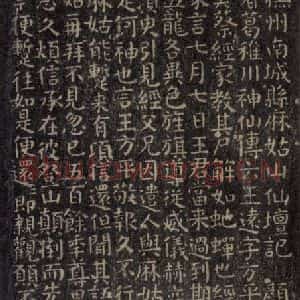 撫州南城縣麻姑山仙壇記顏
者葛稚川神仙傳云王遠字方平
蔡經家教其尸解如蛇蟬也經
家言七月七日王君當來過到期
五龍各異色旌旗導從威儀赫
須臾引見經父兄因遣人與麻姑
是何神也言王方平敬報久不行
麻姑能暫來有頃信還但聞其語
姑再拜不見忽已五百餘年尊
念久煩信承在彼登山顛倒而先
便暫往如是便還還即親觀願不